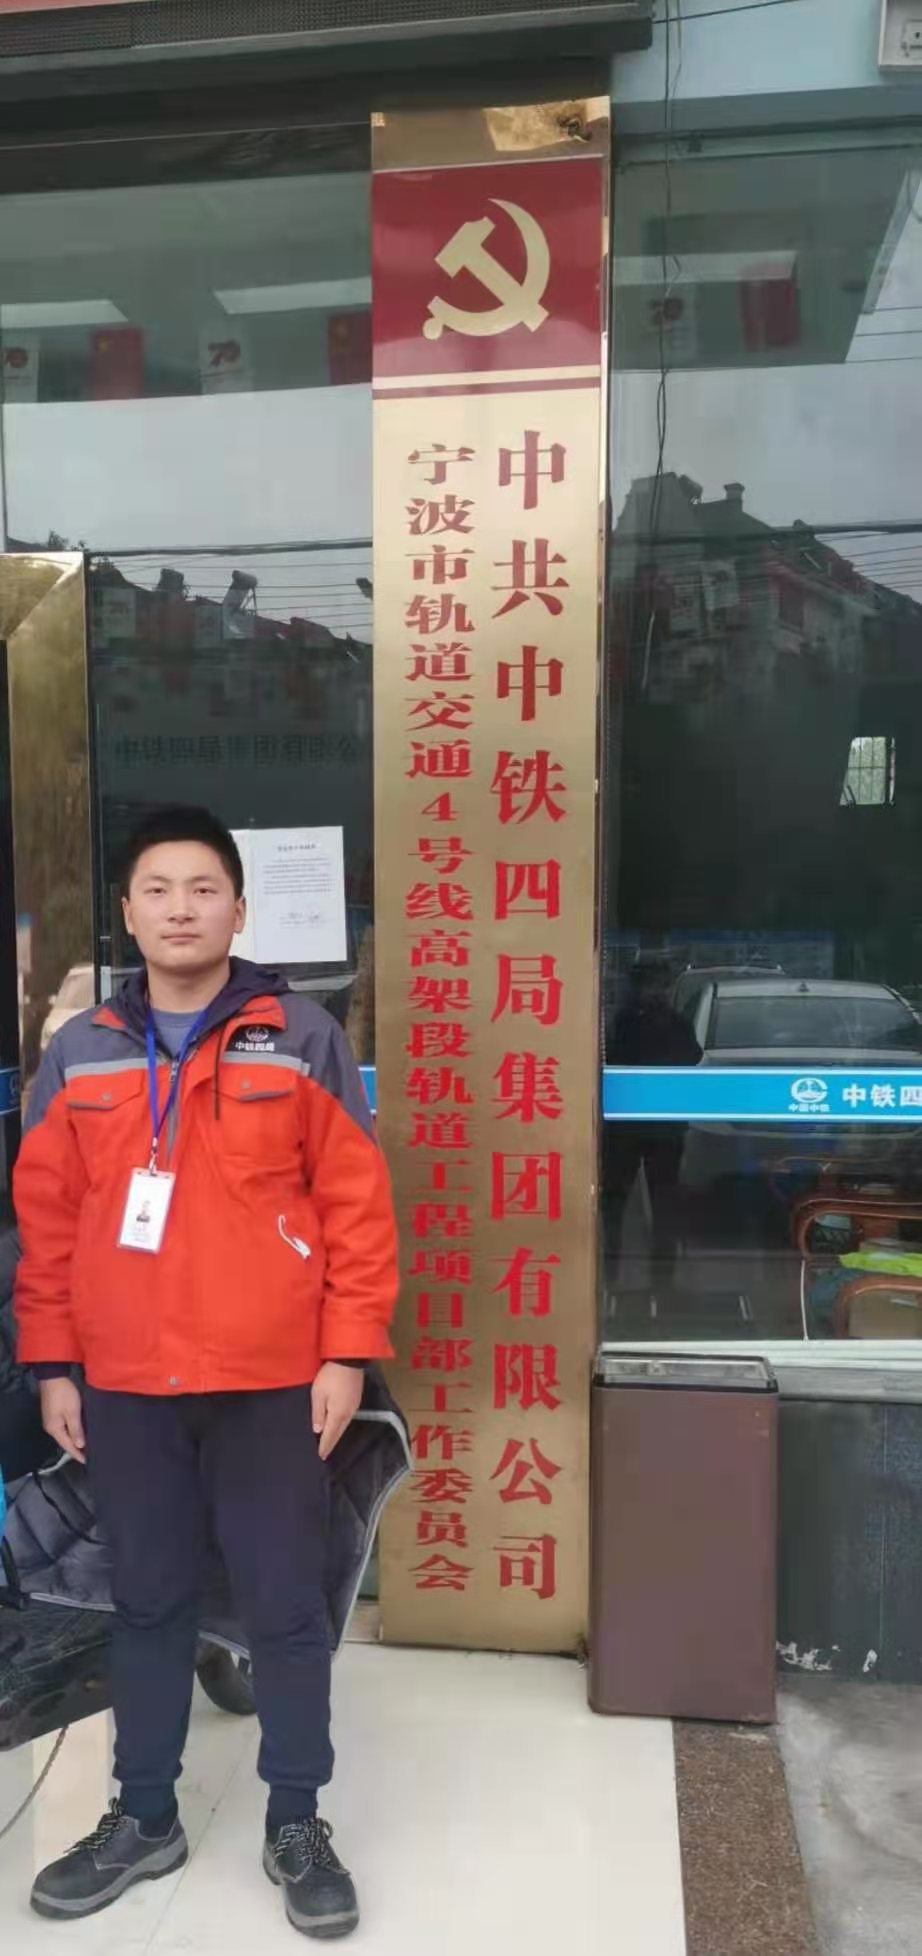 中共中铁四局集团有限公司
宁波市轨道交通4号线高架段轨道工程项目部工作委员会
中铁四局
中国中铁
中铁四
70
70
70